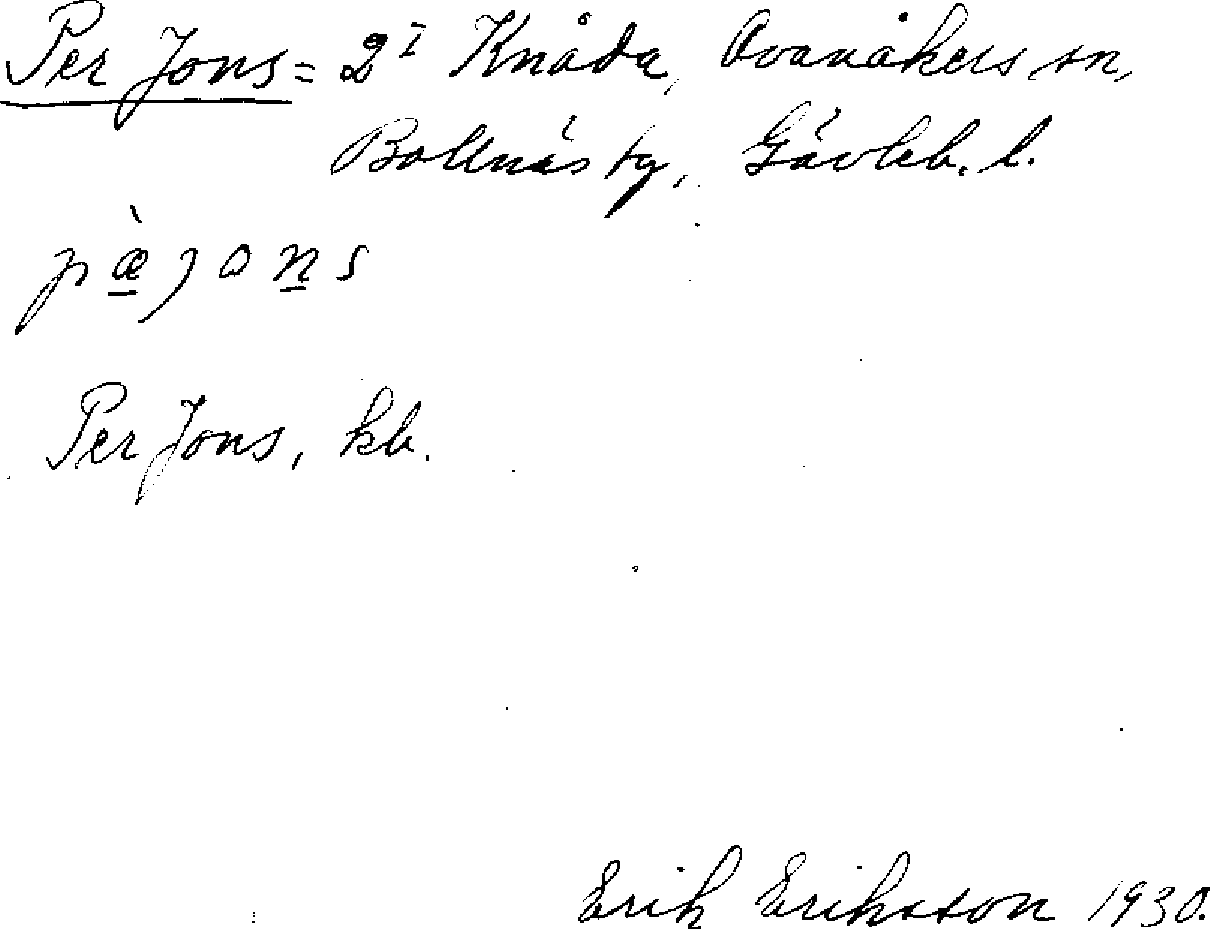 Per Jons = 2I Knåda, Ovanåkers sn,
Bollnäs tg, Gävleb. l.
pæ̀jons
Per Jons, kb.
Erik Eriksson 1930.